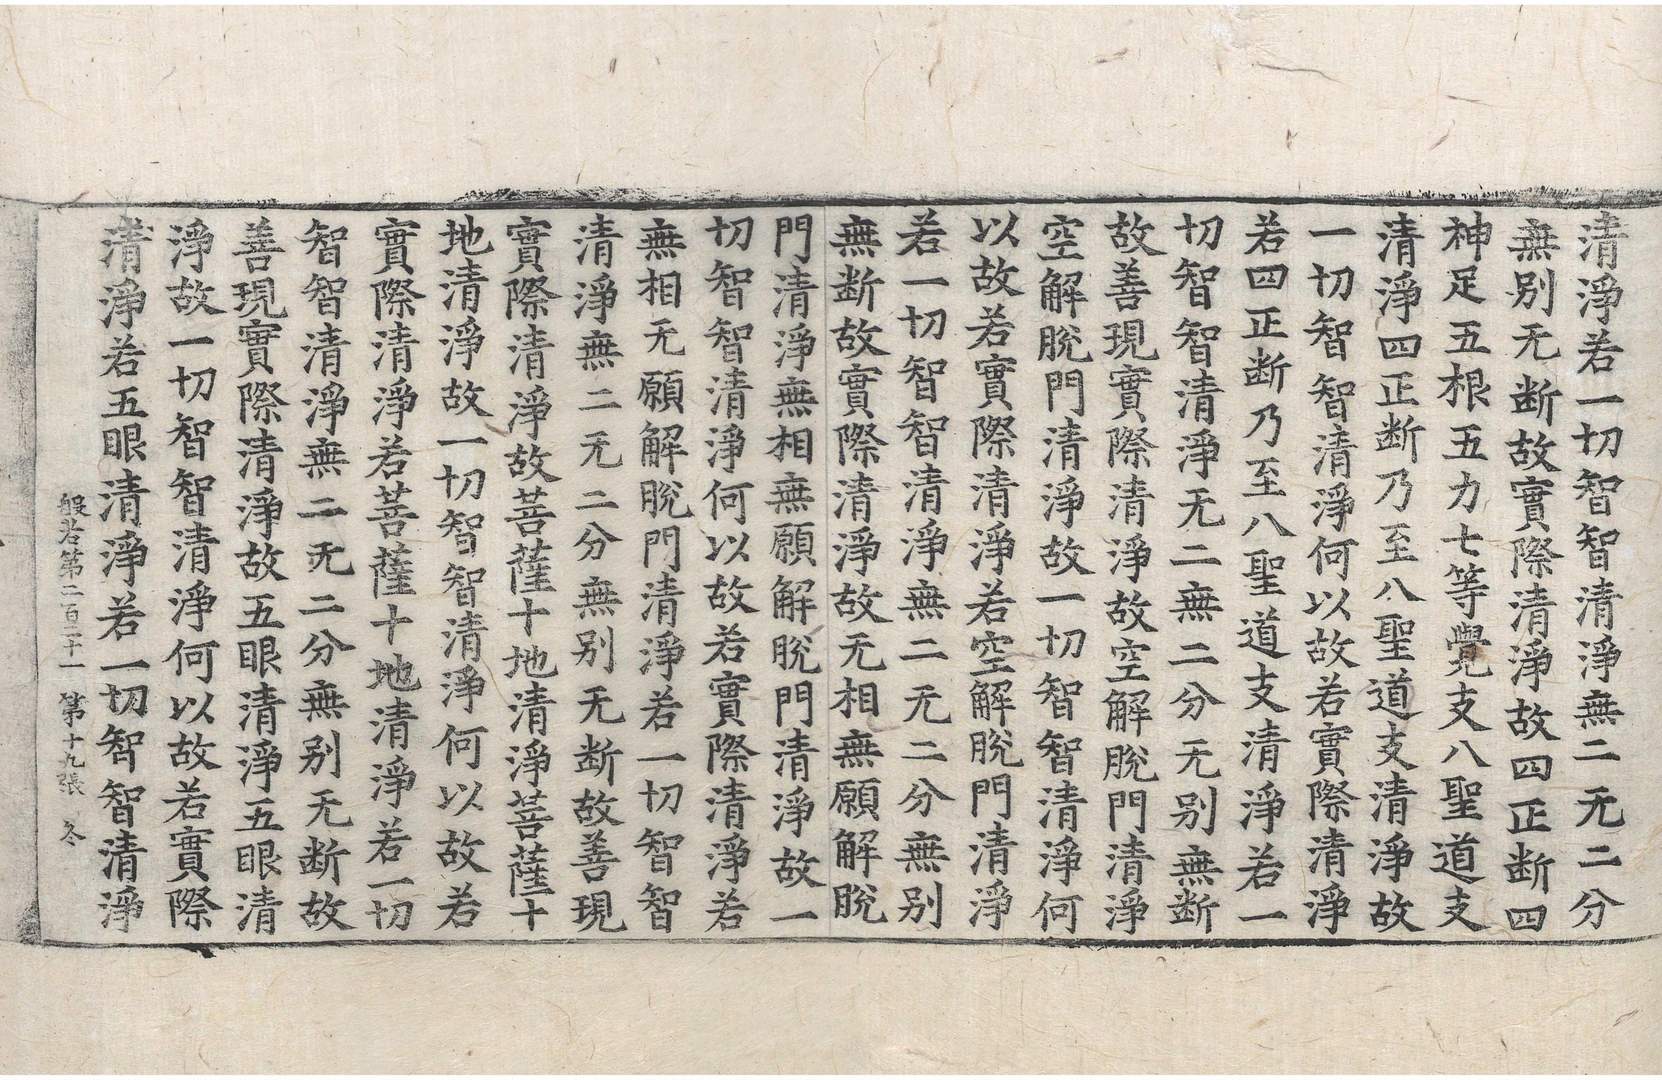 清淨若一切智智清淨無二无二分
無別无断故實際清淨故四正断四
神足五根五力七等覺支八聖道支
清淨四正断乃至八聖道支清淨故
一切智智清淨何以故若實際清淨
若四正断乃至八聖道支清淨若一
切智智清淨无二無二分无别無断
故善現實際清淨故空解脫門清淨
空解脫門清淨故一切智智清淨何
以故若實際清淨若空解脫門清淨
若一切智智清淨無二无二分無别
無断故實際清淨故无相無願解脫
門清淨無相無願解脫門清淨故一
切智智清淨何以故若實際清淨若
無相无願解脫門清淨若一切智智
清淨無二无二分無别无断故善現
實際清淨故菩薩十地清淨菩薩十
地清淨故一切智智清淨何以故若
實際清淨若菩薩十地清淨若一切
智智清淨無二无二分無别无断故
善現實際清淨故五眼清淨五眼清
淨故一切智智清淨何以故若實際
清淨若五眼清淨若一切智智清淨
般若第二百二十一 第十九張 冬